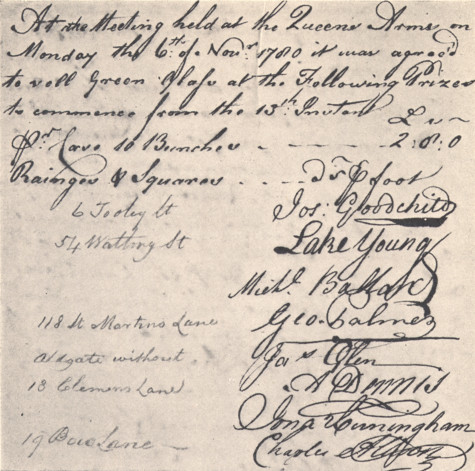 At the Meeting held at the Queens Arms on
Monday the 6th of Novr 1780 it was agreed
to sell Green Glass at the Following Prizes
to commence from the 13th Instant
£ s ~
Pr Case 10 Bunches - - - - 2:8:0
Rainges & Squares - - - - foot
6 Tooley St Jos: Goodchild
54 Watling St Lake Young
Michl. Ballard
118 St Martins Lane Geo. Palmer
Aldgate without Jas Olen
18 Clemens Lane A Dennis
Jona Cunningham
19 Bow Lane Charles